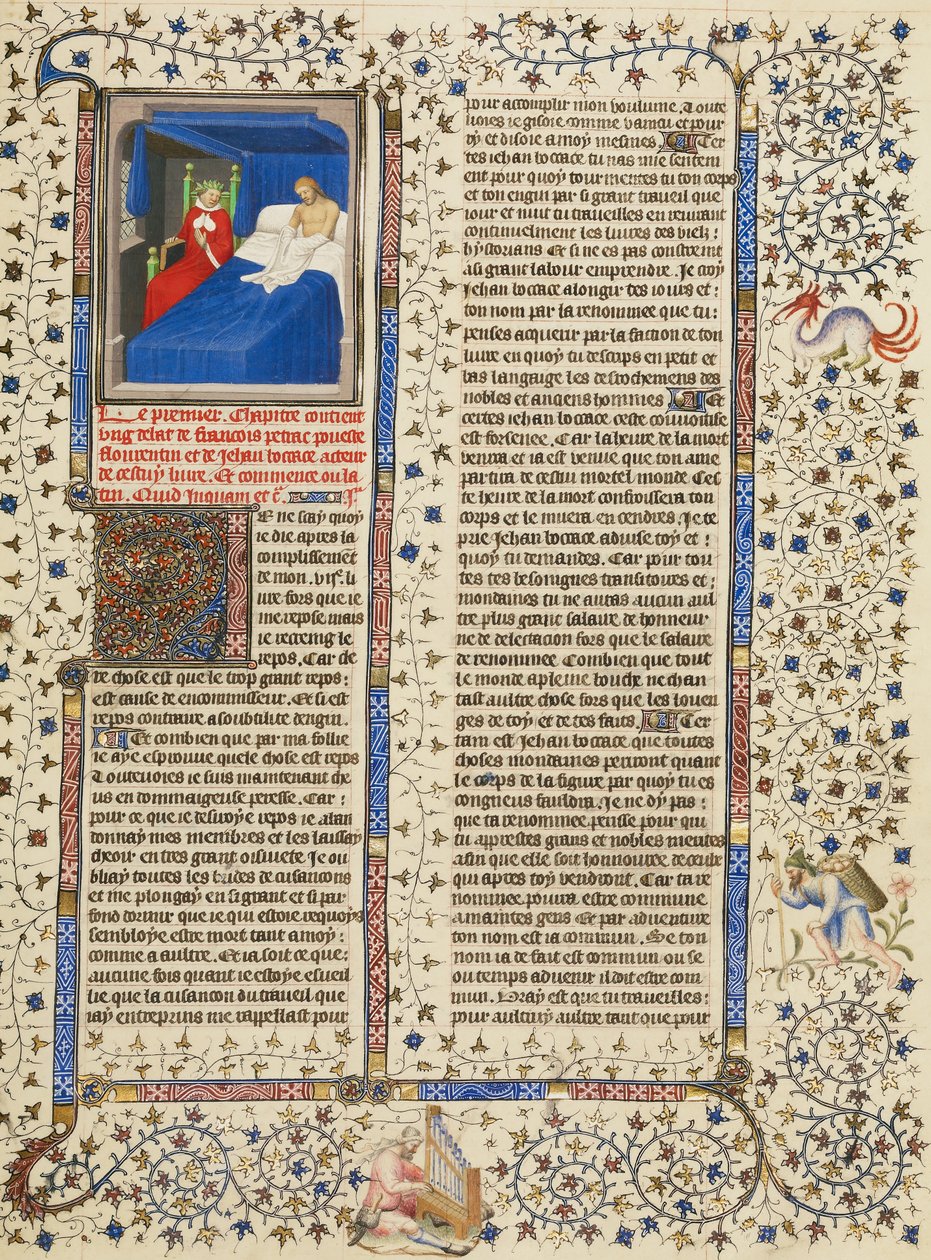 Le premier. Chapitre contient
ung debat de francois petrac pouete
flourentin et de Jehan bocace acteur
de cestuy livre. Et commence ou la
tin. Quid Inquam et c̃.
E ne scay quoy
ie die apres la
complissem̃t
de mon. viiie. li
ure fors que ie
me repose mais
ie recreing le
repos. Car cle
re chose est que le trop grant repos:
est cause de encommisseur. Et si est
repos contraire a soubtilite dengin.
Et combien que par ma follie
ie aye esprouue quele chose est repos
Toutevoies ie suis maintenant che
us en dommaigeuse peresse. Car:
pour ce que ie desiroye repos ie aban
donnay mes membres et les laissay
cheoir en tres grant oisivete. Je ou
bliay toutes les brides de cusancons
et me plongay en si grant et si par
fond dormir que ie qui estoie requoys
sembloye estre mort tant a moy:
comme a aultre. Et ia soit ce que:
aucune fois quant ie estoye esueil
lie que la cusancon du traueil que
iay entreprins me rappellast pour
pour acconplir mon voulume. Toute
uoies ie gisoie comme vaincu et pour
ce et disoie a moy mesmes. Cer
tes iehan bocace tu nas mie sentem
ent pour quoy tourmentes tu ton corps
et ton engin par si grant traueil que
iour et nuit tu traueilles en reuirant
continuelment les liures des vielz:
hystorians Et si nees pas constreint
a si grant labour emprendre. Je croy
Jehan bocace alongir tes iours et:
ton nom par la renommee que tu:
penses acquerir par la faction de ton
liure en quoy tu descrips en petit et
bas langaige les destrochemens des
nobles et anciens hommes Et
certes iehan bocace ceste couuoitise
est forsenee. Car la heure de la mort
vendra et ia est venue que ton ame
partira de cestui mortel monde Cest
te heure de la mort confroissera ton
corps et le muera en cendres. Je te
prie Jehan bocace aduise toy et:
quoy tu demandes. Car pour tou
tes tes besoignes transitoires et:
mondaines tu ne auras aucun aul
tre plus grant salaire de honneur
ne de delectacion fors que le salaire
de renommee Combien que tout
le monde a pleine bouche ne chan
tast aultre chose fors que les louen
ges de toy et de tes faits. Cer
tain est Jehan bocace que toutes
choses mondaines periront quant
le corps de la figure par quoy tu es
congneus fauldra. Je ne dy pas:
que ta renommee perisse pour qui
tu aprestes grans et nobles merites
afin que elle soit honnouree de ceulx
qui apres toy vendront. Car ta re
nommee pourra estre commune
a maintes gens Et par aduenture
ton nom est ia commun. Se ton
nom ia de fait est commun ou se
ou temps aduenir il doit estre com
mun. Vray est que tu traueilles:
pour aultruy aultre tant que pour